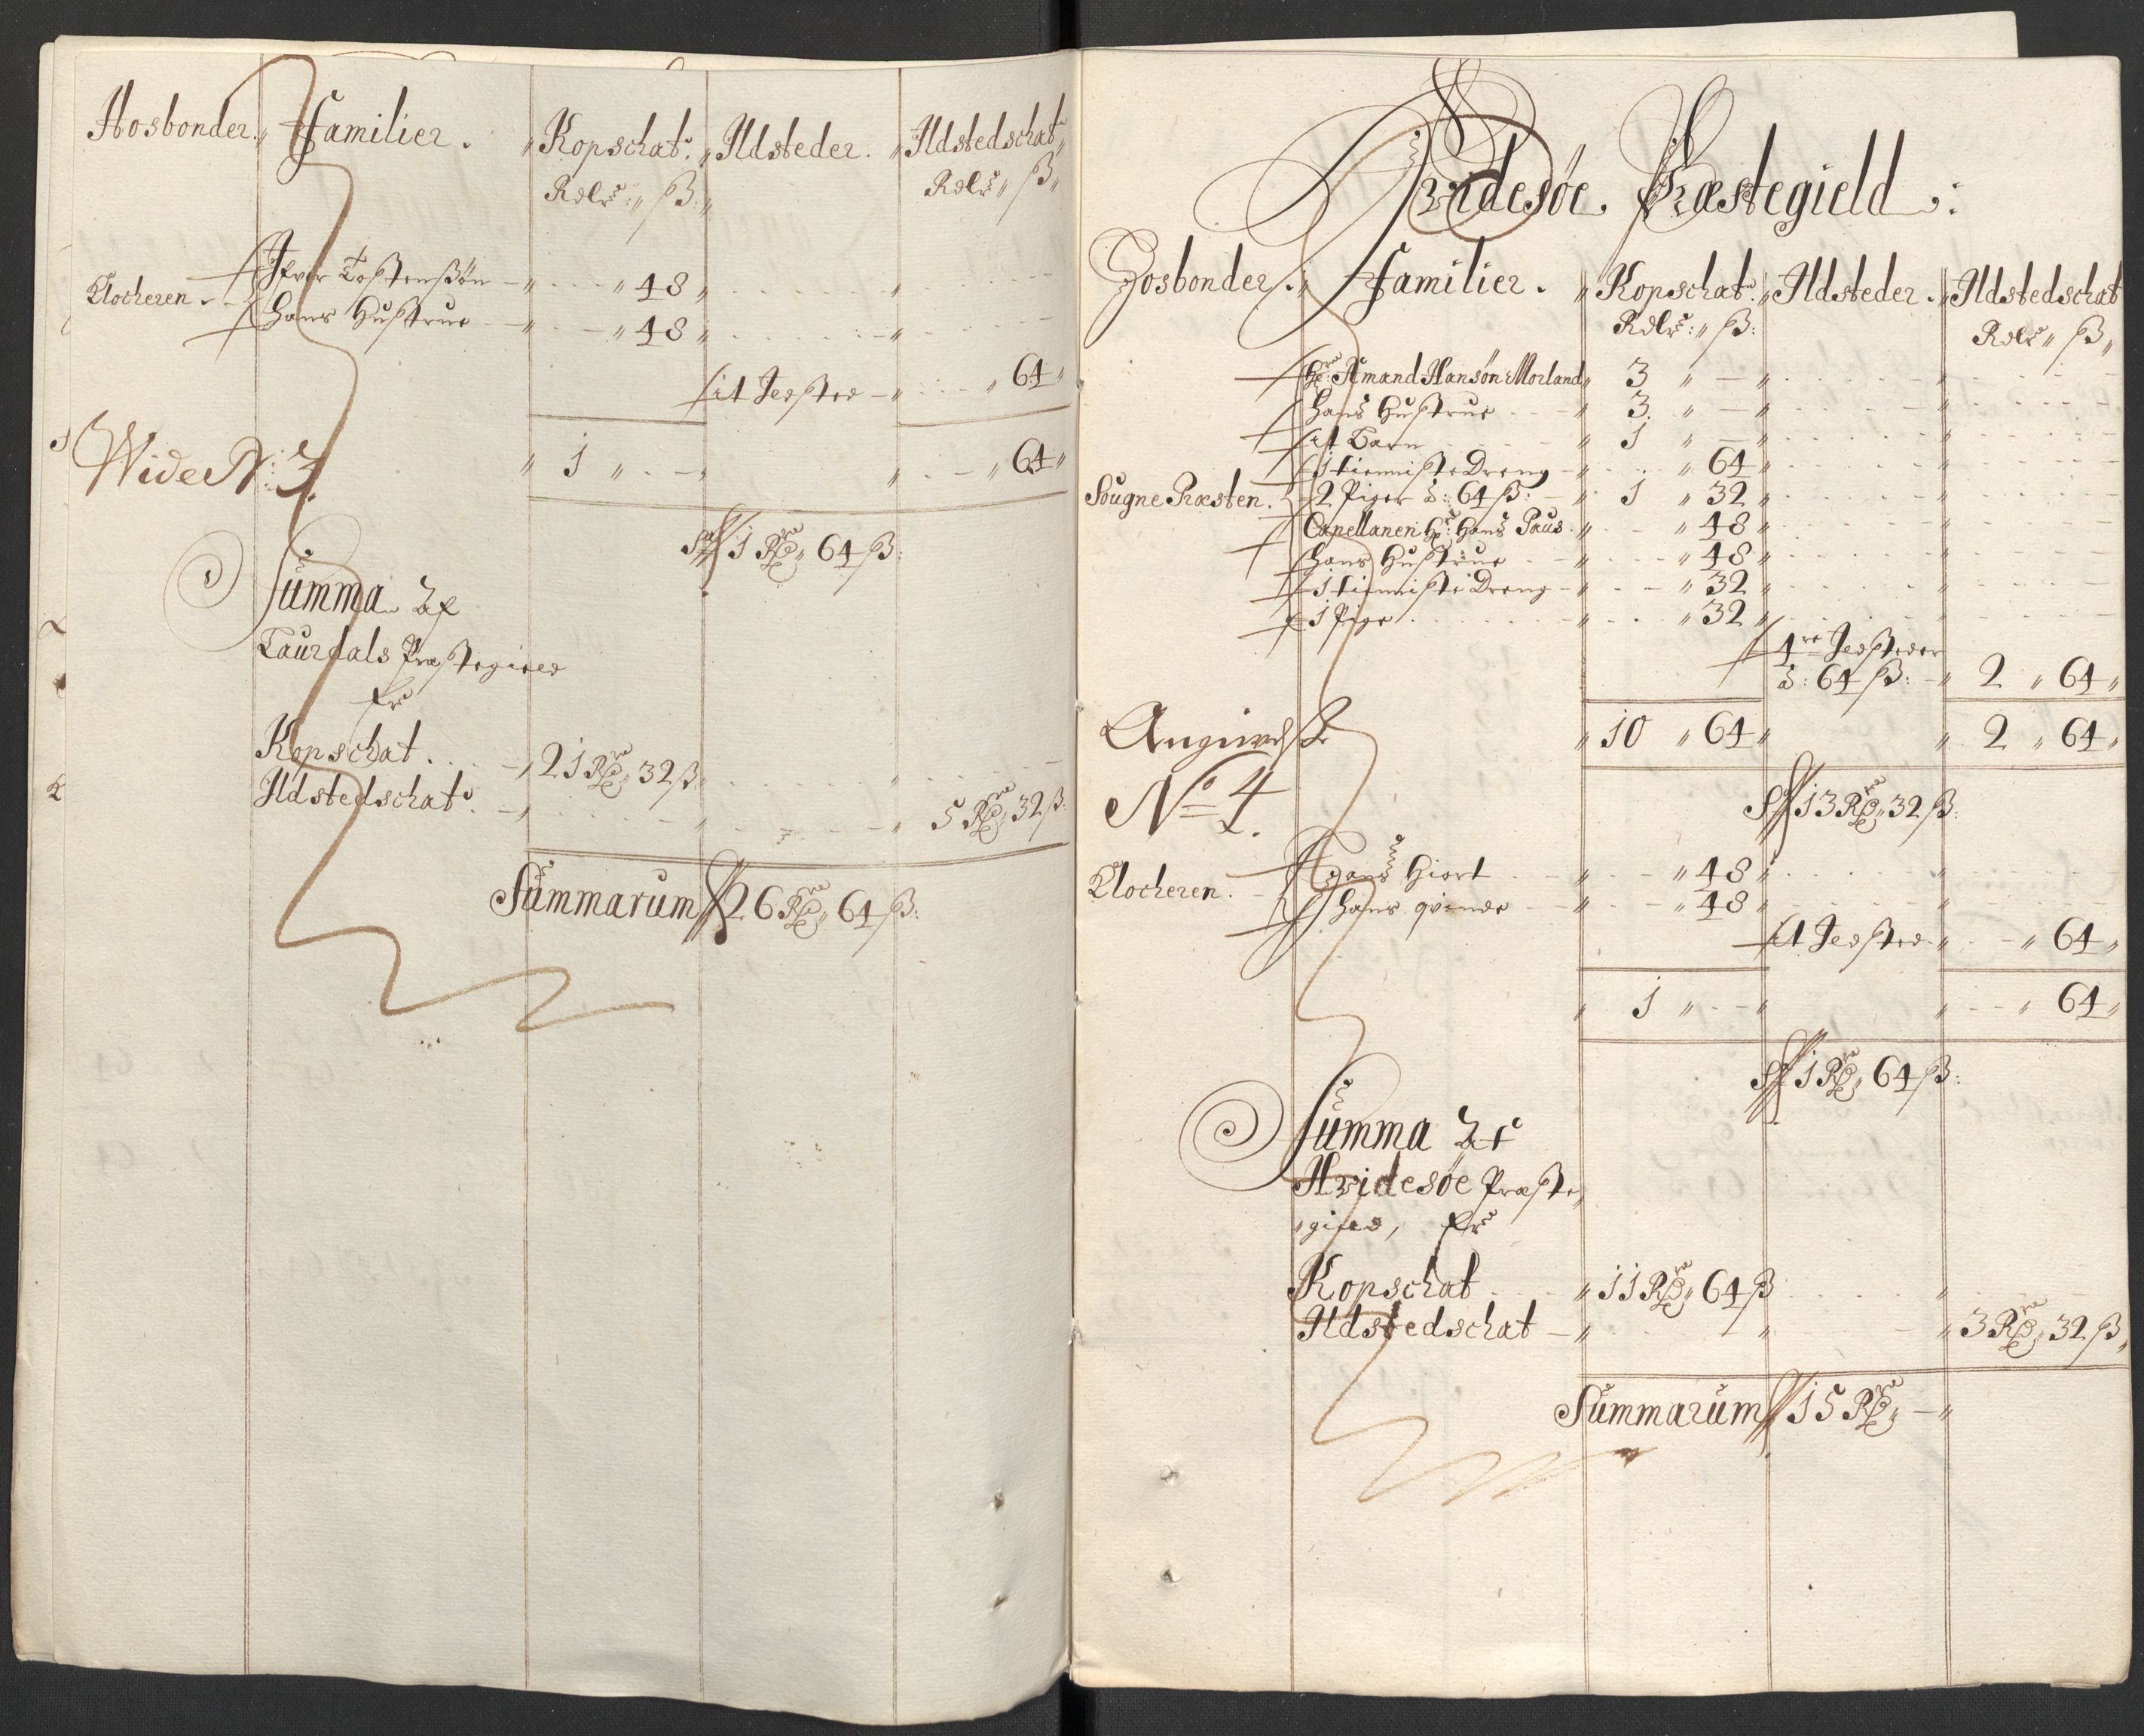 Hosbonder. Familier. Kopschat. Ildsteder. Ildstedschat
Rdlr: ß: Rdlr ß
Klocheren Ifver Tostensøn 48
Hans Hustrue 48
it Ildsted 64
Wide N: 3. 1 - 64
Sa 1 Rdr 64 ß:
Summa Af
Laurdals Præstegield
Er
Kopschat. 21 Rdr 32 ß
Ildstedschat. 5 Rdr 32 ß:
Summarum 26 Rdr 64 ß:
Hvidesøe Præstegield:
Hosbonder. Familier. Kopschat. Ildsteder. Ildstedschat
Rdlr: ß: Rdlr ß
Hr: Amand Hansøn Morland 3 -
Hans Hustrue 3 -
it Barn 1 -
1 tienniste Dreng 64
Sougne Præsten. 2 Piger à: 64 ß: 1 32
Capellanen Hr: Hans Paus 48
Hans Hustrue 48
1 tienniste Dreng 32
1 Pige 32
4re Ildsteder
à: 64 ß: 2 64
10 64 2 64
No 4.
S 13 Rdr 32 ß:
Klocheren. Hans Hiort 48
Hans qvinde 48
it Ildsted 64
1 - 64
S 1 Rdr 64 ß:
Summa Af
Hvidesøe Præste
gield, Er
Kopschat 11 Rdr 64 ß
Ildstedschat 3 Rdr 32 ß
Summarum 15 Rdr -